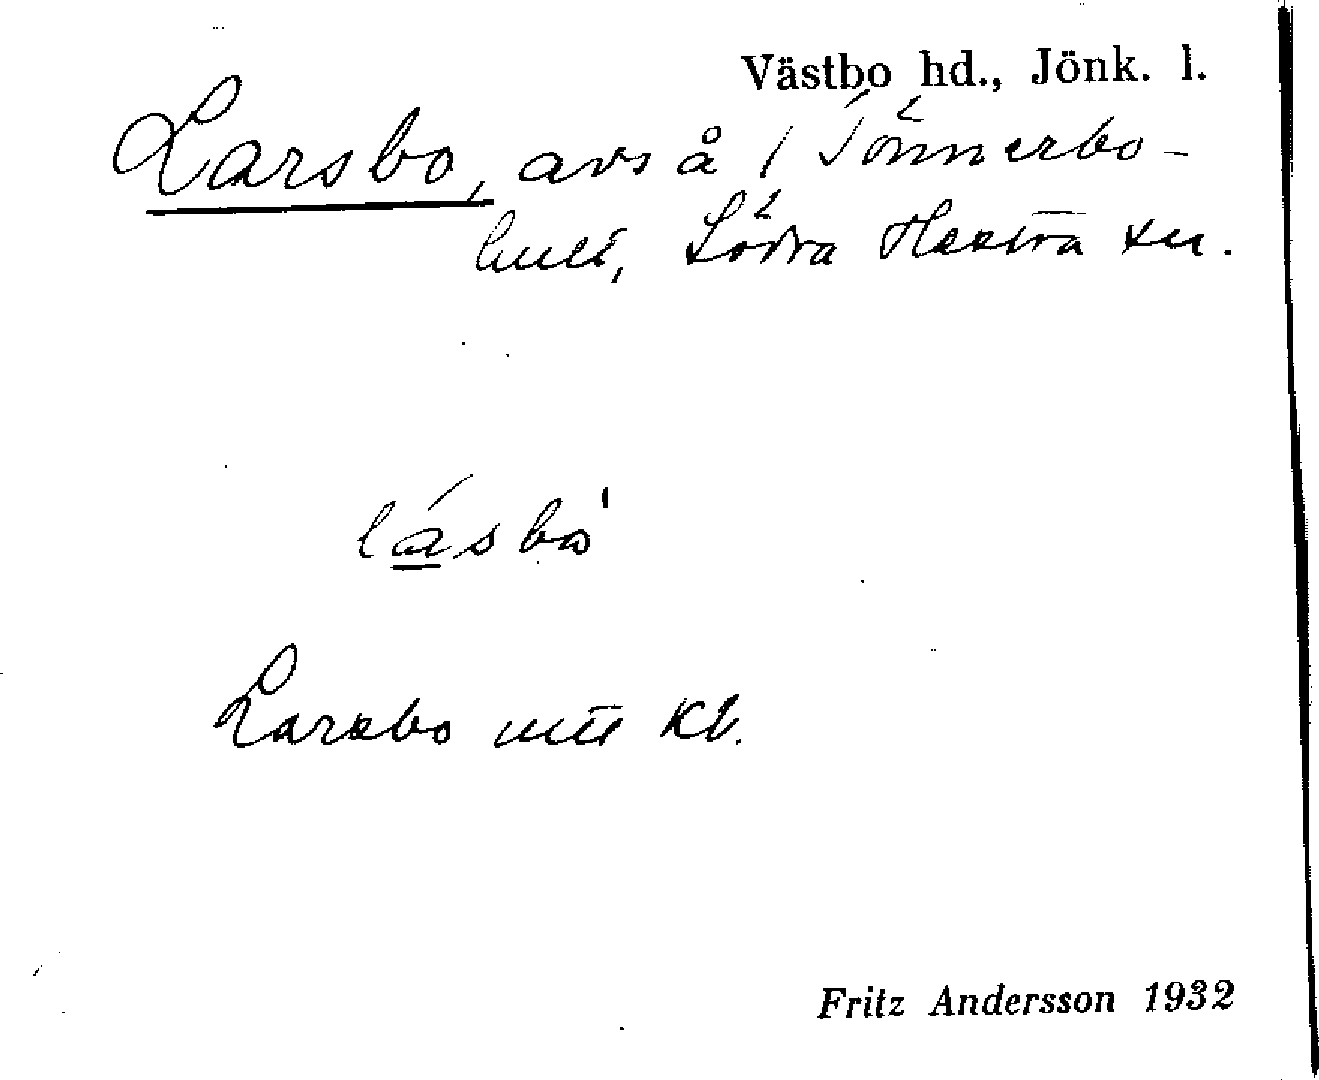 Västbo hd., Jönk. l.
Larsbo, avs å / Tönnerbo-
hult, Södra Hestra sn.
lásbo'
Larsbo utt Kl.
Fritz Andersson 1932